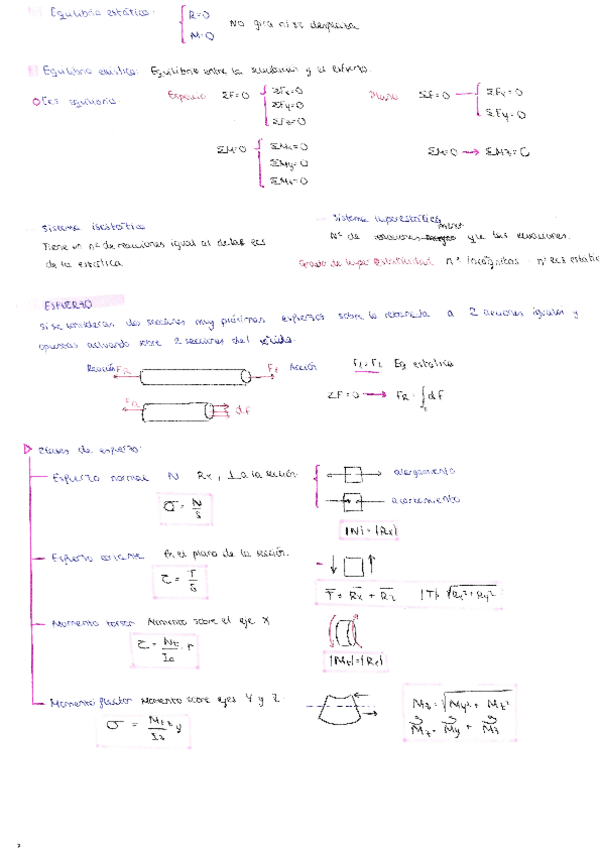 Equilibrio estático: { R=0 No gira ni se desplaza
M=0
Equilibrio elástico: Equilibrio entre las tensiones y el esfuerzo.
Ecs equilibrio Espacio ΣF=0 { ΣFx=0 ΣFy=0 ΣFz=0 Plano ΣF=0 → { ΣFx=0 ΣFy=0
ΣM=0 { ΣMx=0 ΣMy=0 ΣMz=0 ΣM=0 → ΣMz=0
Sistema isostático
Tiene un nº de reacciones igual al de las ecs
de la estática.
Sistema hiperestático
Nº de reacciones mayor que las ecuaciones.
Grado de hiperestaticidad nº incógnitas - nº ecs estátic
ESFUERZO
Si se consideran dos secciones muy próximas esfuerzos sobre la rebanada a 2 acciones iguales y
opuestas actuando sobre 2 secciones del sólido.
Reacción FR F1 Acción Eq estático
FR dF ΣF=0 → FR = ∫ dF
Clases de esfuerzo:
Esfuerzo normal N Rx, ⊥ a la sección. alargamiento
σ = N/S acortamiento
|N| = |Rx|
Esfuerzo cortante En el plano de la sección.
τ = T/S
|T| = √Ry²+Rz²
Momento torsor Momento sobre el eje X
τ = Mt/Io · r
Momento flector Momento sobre ejes Y y Z.
σ = Mfz/Iz y
√My² + Mz²